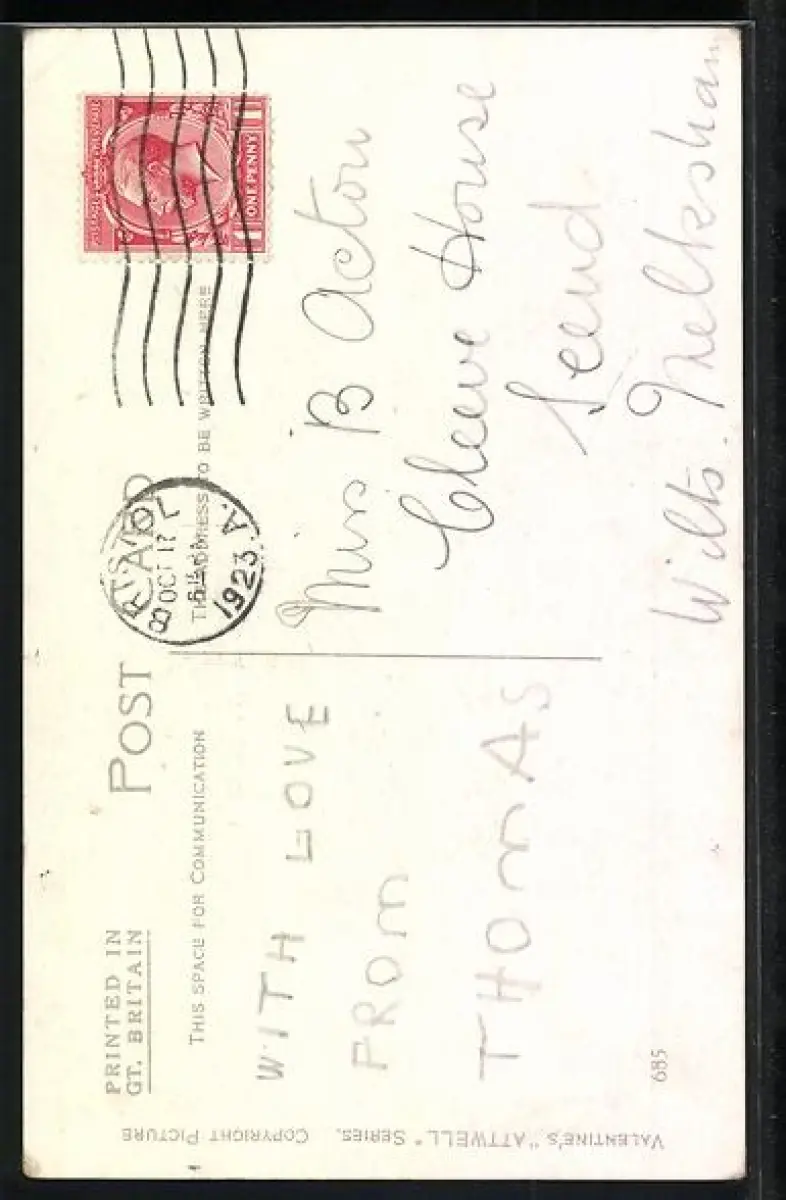 PRINTED IN
GT. BRITAIN
POST CARD
THIS SPACE FOR COMMUNICATION
THE ADDRESS TO BE WRITTEN HERE
WITH LOVE
FROM
THOMAS
Miss B Acton
Cleeve House
Seend
Melksham
Wilts.
ONE PENNY
BRISTOL
OCT 12
1923
685
VALENTINE'S "ATTWELL" SERIES. COPYRIGHT PICTURE